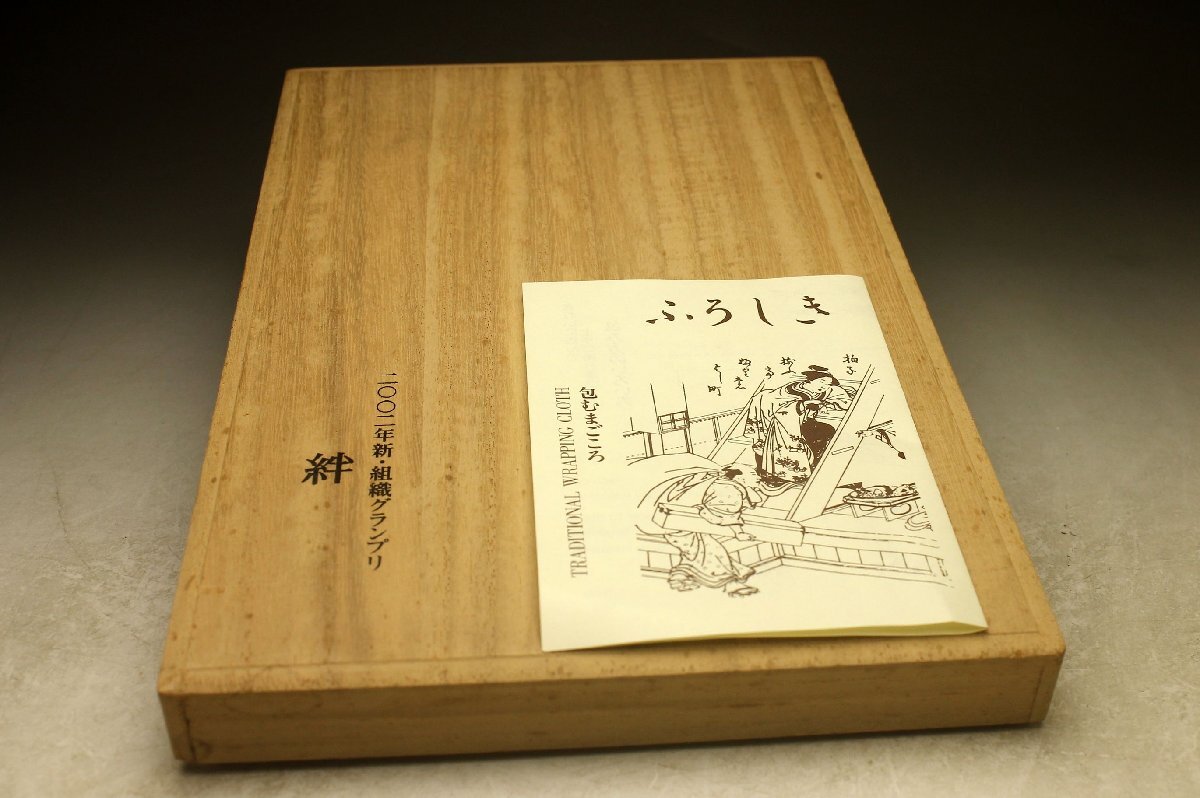 二〇〇二年新・組織グランプリ
絆
ふろしき
包むまごころ
TRADITIONAL WRAPPING CLOTH